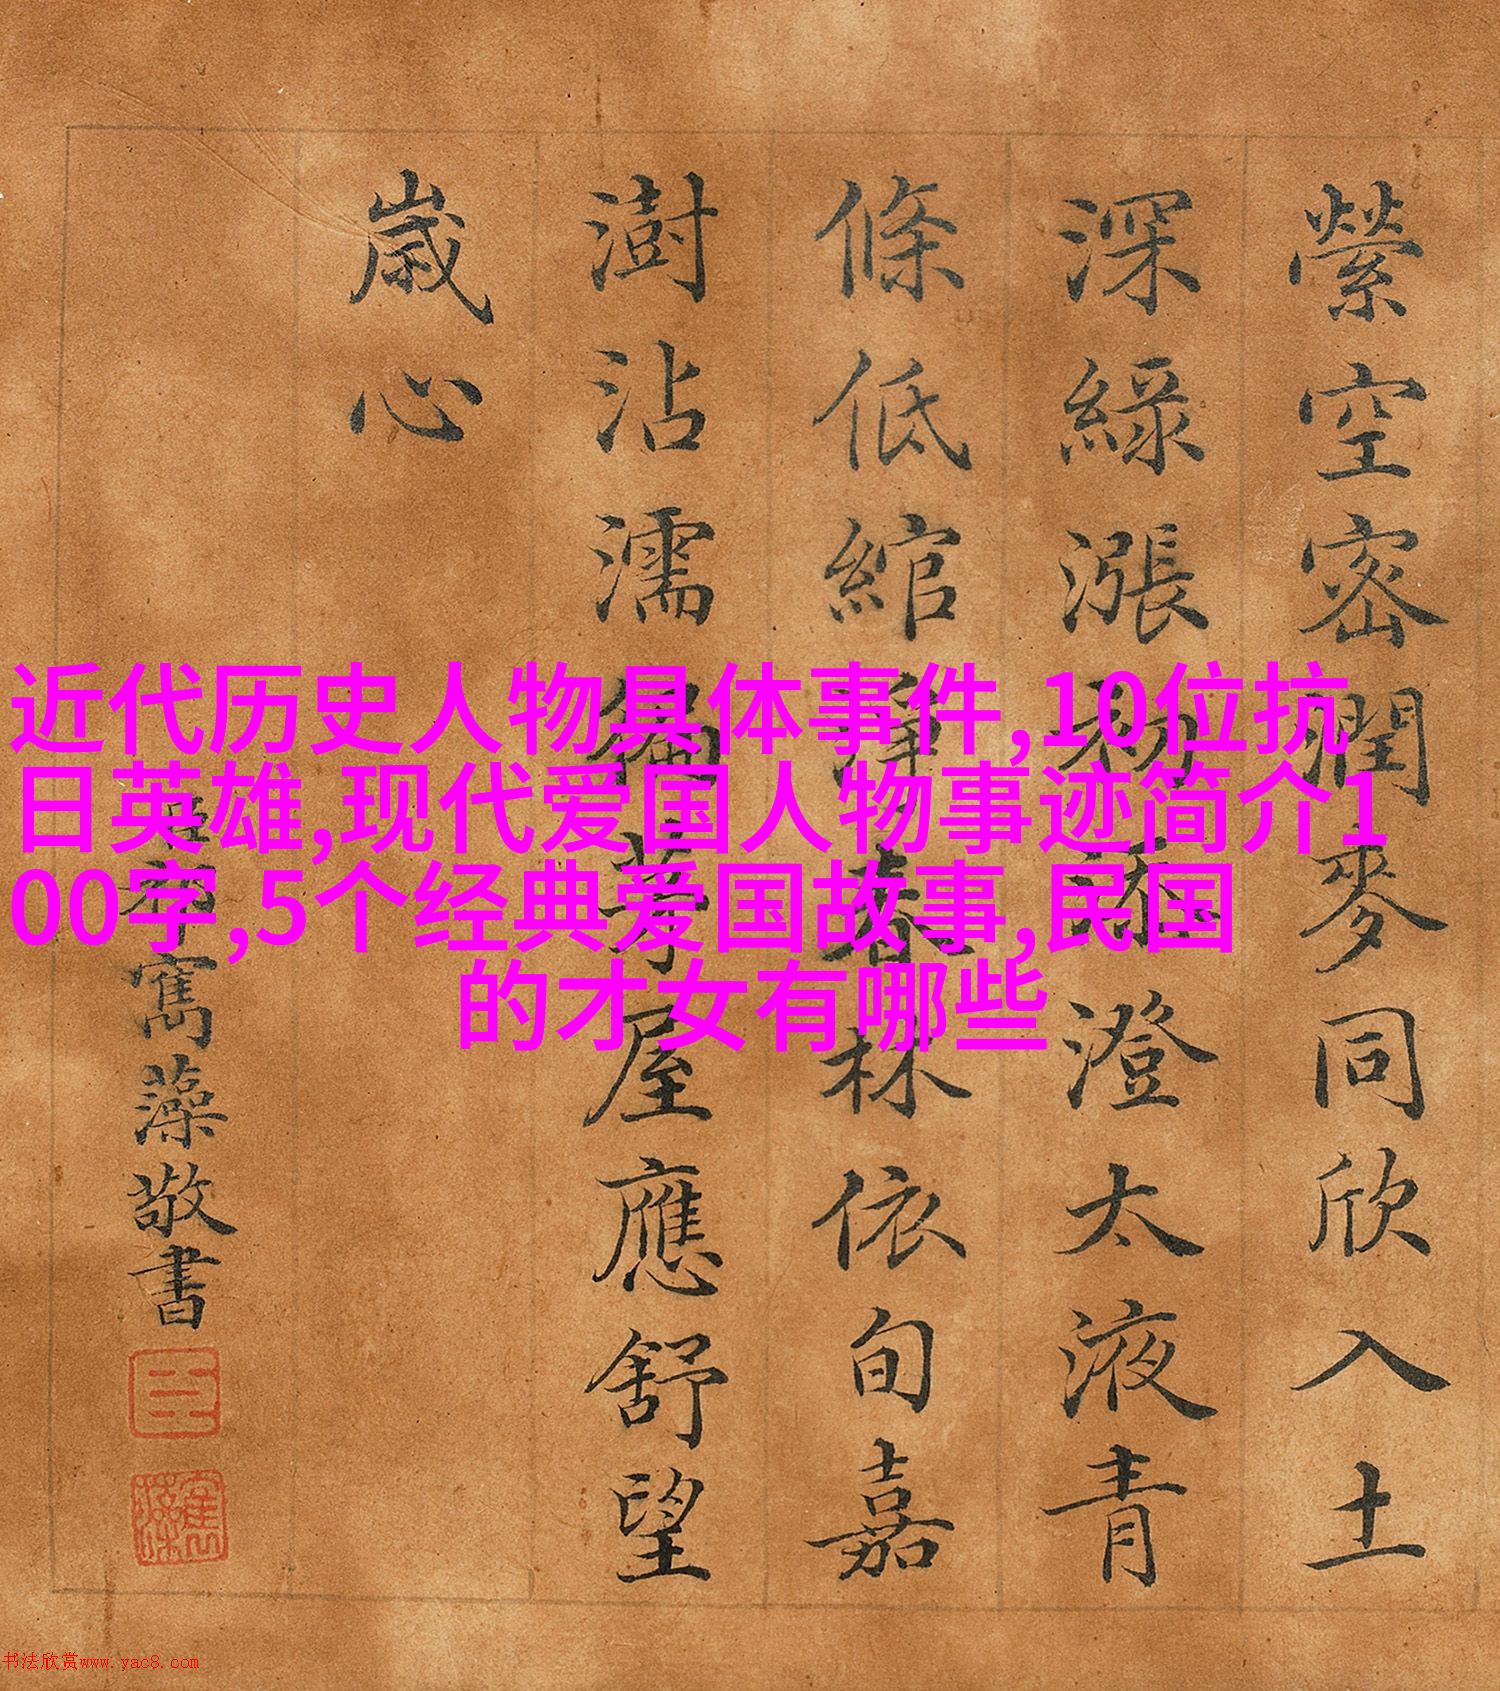 近代历史人物具体事件,10位抗
日英雄,现代爱国人物事迹简介1
00字,5个经典爱国故事,民国
的才女有哪些
縈空密潤麥同欣入土
深綠漲初添澄太液青
條低綰春林依旬嘉
澍沾濡徧屋應舒望
歲心
臣祁寯藻敬書
臣
寯藻
书法欣赏www.yac8.com